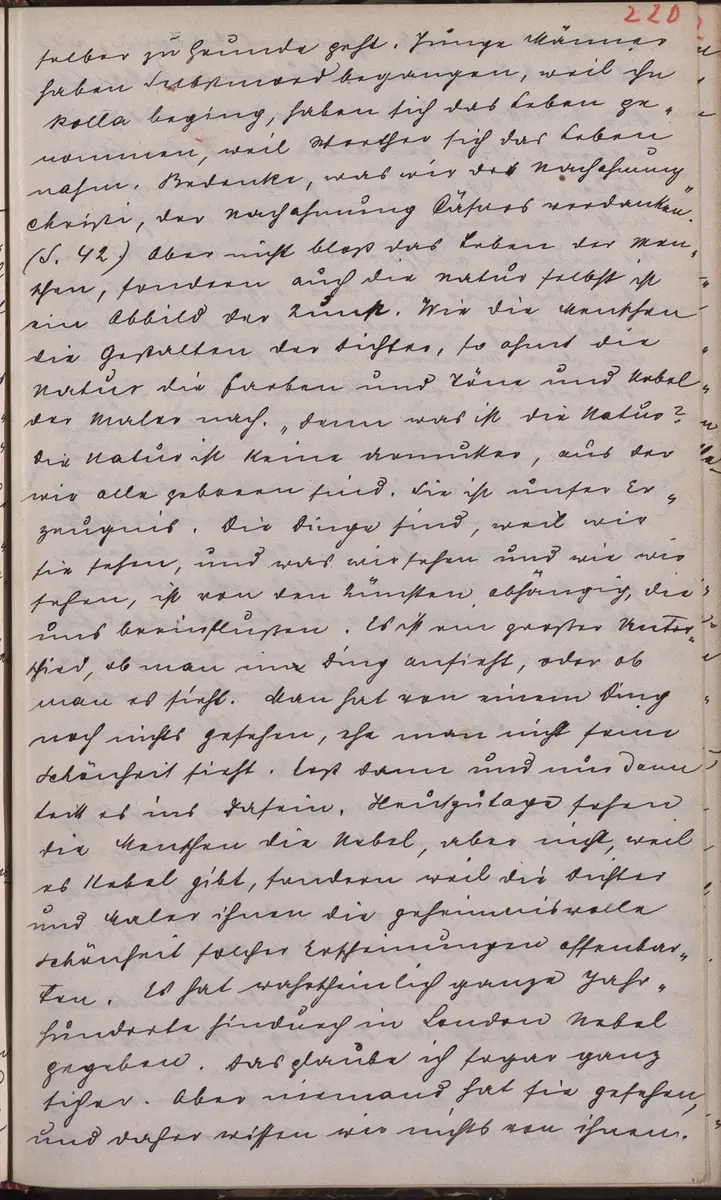 220
selber zu Grunde geht. Junge Männer
haben Selbstmord begangen, weil ihn
Rolla beging, haben sich das Leben ge„
nommen, weil Werther sich das Leben
nahm. Bedenke, was wir der Nachahmung
Christi, der Nachahmung Cäsars verdanken".
(S. 42.) Aber nicht bloß das Leben der Men„
schen, sondern auch die Natur selbst ist
ein Abbild der Kunst. Wie die Menschen
die Gestalten der Dichter, so ahmt die
Natur die Farben und Töne und Nebel
der Maler nach. „Denn was ist die Natur?
Die Natur ist keine Urmutter, aus der
wir alle geboren sind. Sie ist unser Er„
zeugnis. Die Dinge sind, weil wir
sie sehen, und was wir sehen und wie wir
sehen, ist von den Künsten abhängig, die
uns beeinflußen. Es ist ein großer Unter„
schied, ob man ein Ding ansieht, oder ob
man es sieht. Man hat von einem Ding
noch nichts gesehen, ehe man nicht seine
Schönheit sieht. Erst dann und nur dann
tritt es ins Dasein. Heutzutage sehen
die Menschen die Nebel, aber nicht, weil
es Nebel gibt, sondern weil die Dichter
und Maler ihnen die geheimnisvolle
Schönheit solcher Erscheinungen offenbar„
ten. Es hat wahrscheinlich ganze Jahr„
hunderte hindurch in London Nebel
gegeben. Das glaube ich sogar ganz
sicher. Aber niemand hat sie gesehen,
und daher wissen wir nichts von ihnen.